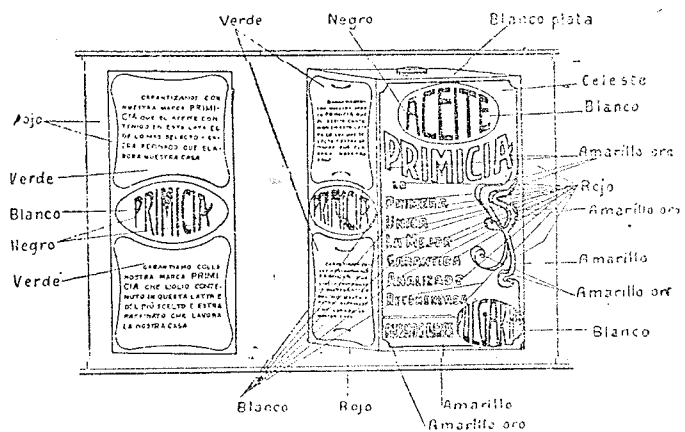 Verde
Negro
Blanco plata
Celeste
Blanco
Amarillo oro
Rojo
Amarillo oro
Amarillo
Amarillo oro
Blanco
Rojo
Verde
Blanco
Negro
Verde
GARANTIZAMOS CON
NUESTRA MARCA PRIMI-
CIA QUE EL ACEITE CON-
TENIDO EN ESTA LATA ES
DE LO MAS SELECTO Y EX-
TRA REFINADO QUE ELA-
BORA NUESTRA CASA
PRIMICIA
GARANTIAMO COLLA
NOSTRA MARCA PRIMI
CIA CHE L'OLIO CONTE-
NUTO IN QUESTA LATINA E
DEL PIÚ SCELTO E EXTRA
RAFFINATO CHE LAVORA
LA NOSTRA CASA
ACEITE
PRIMICIA
LO
PRIMERA
UNICA
LA MEJOR
GARANTIDA
ANALIZADO
Blanco
Rojo
Amarillo
Amarillo oro